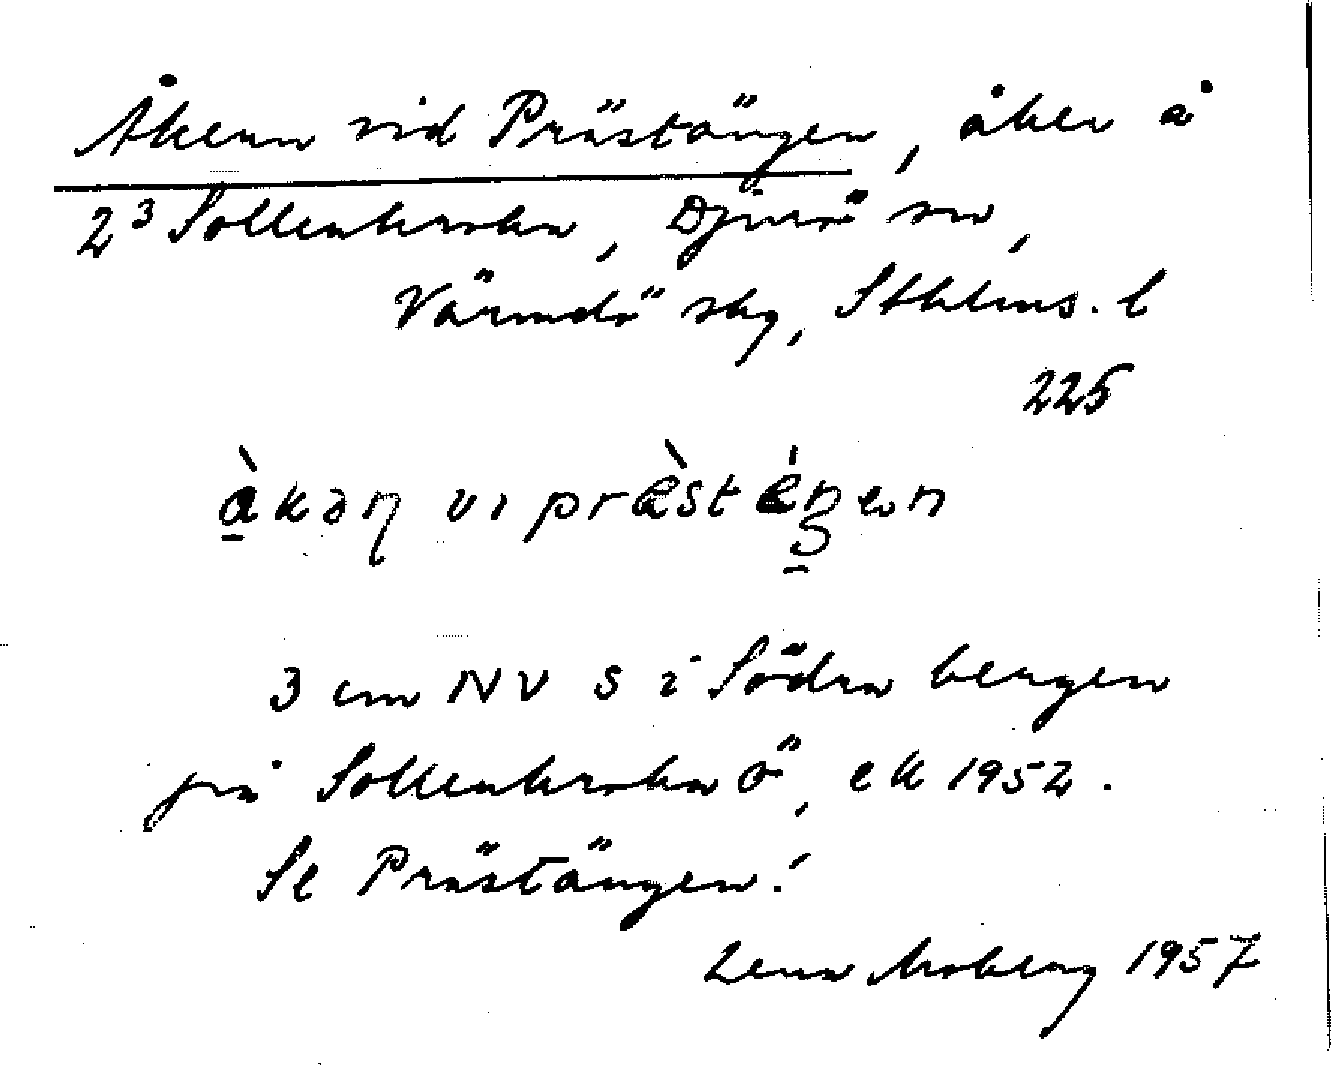 Åkern vid Prästängen, åker å
2³ Sollenkroka, Djurö sn,
Värmdö skg, Sthlms. l
225
àkəɳ vi præ̀stǽŋen
3 cm NV S i Södra bergen
på Sollenkroka ö, ek 1952.
Se Prästängen!
Lena Moberg 1957